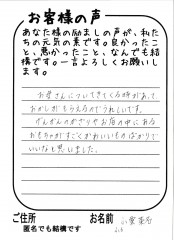 お客様の声
あなた様の励ましの声が、私た
ちの元気の素です。良かったこ
と、悪かったこと、なんでも結
構です。一言よろしくお願いし
ます。
お母さんについてきてくる時があって
おかしがもらえるのでうれしいです。
げんかんのかざりやお店の中にある
おもちゃがすごくかわいいものばかりで
いいなと思いました。
ご住所
お名前
匿名でも結構です